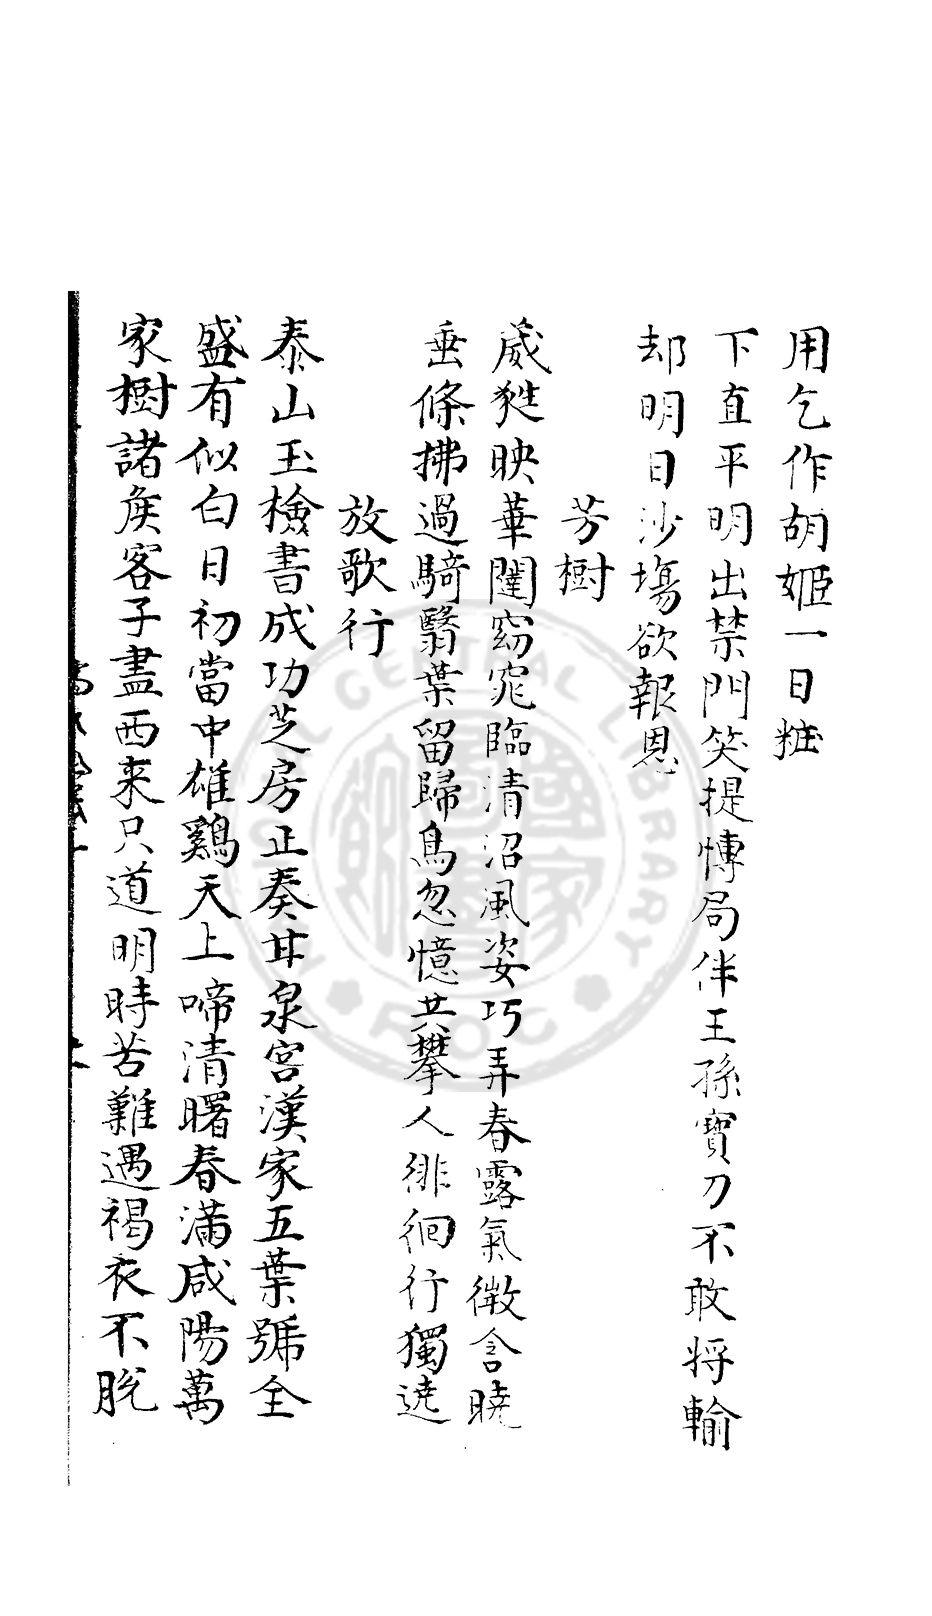 用乞作胡姬一日粧
下直平明出禁門笑提愽局伴王孫寶刀不敢將輸
却明日沙塲欲報恩
芳樹
葳甤映華闥窈窕臨清沼風姿巧弄春露氣微含曉
垂條拂過騎翳葉留歸鳥忽憶共攀人徘徊行獨遶
放歌行
泰山玉檢書成功芝房正奏甘泉宮漢家五葉號全
盛有似白日初當中雄鷄天上啼清曙春滿咸陽萬
家樹諸侯客子盡西來只道明時苦難遇褐衣不脫
NATIONAL CENTRAL LIBRARY
ROC